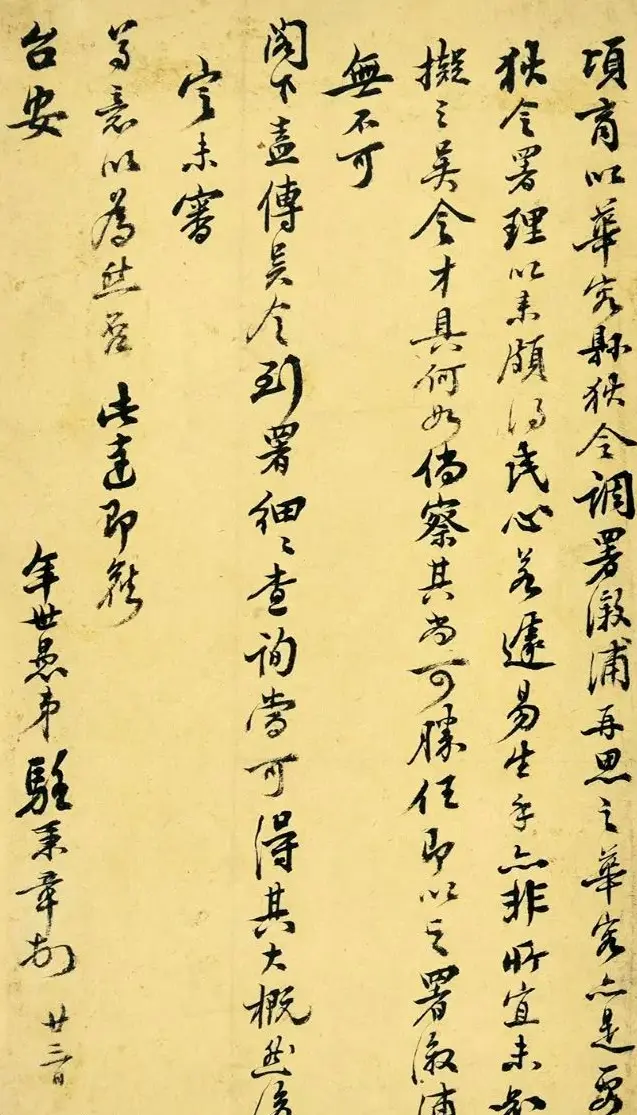 頃商以華容縣狄令調署漵浦再思之華容亦是要
狄令署理以來頗得民心若遽易生手亦非所宜未知
擬之吳令才具何如倘察其尚可勝任即以之署漵浦
無不可
閣下盍傳吳令到署細々查詢當可得其大概然後
定未審
尊意以為然否此達即頌
台安
年世愚弟駱秉章頓
廿三日